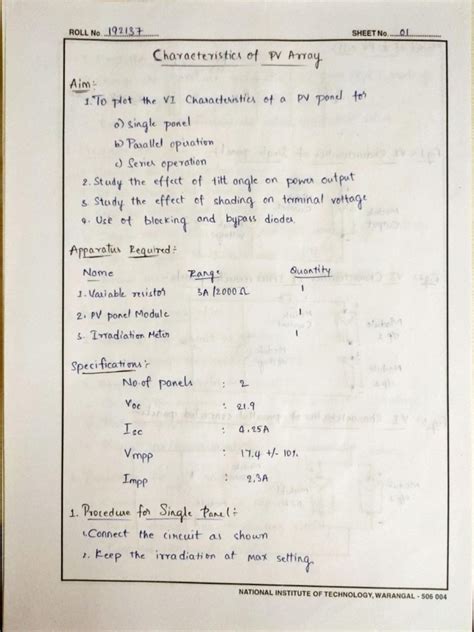 ROLL No. 192137 SHEET No. 01
Characteristics of PV Array
Aim:-
1. To plot the VI Characteristics of a PV panel for
a) Single panel
b) Parallel operation
c) Series operation
2. Study the effect of tilt angle on power output
3. Study the effect of shading on terminal voltage
4. Use of blocking and bypass diodes
Apparatus Required:-
Name Range Quantity
1. Variable resistor 3A/2000Ω 1
2. PV panel Module 1
3. Irradiation Meter 1
Specifications:-
No. of panels : 2
Voc : 21.9
Isc : 0.25A
Vmpp : 17.4 +/- 10%
Impp : 2.3A
1. Procedure for Single Panel:-
1. Connect the circuit as shown
2. Keep the irradiation at max setting.
NATIONAL INSTITUTE OF TECHNOLOGY, WARANGAL - 506 004